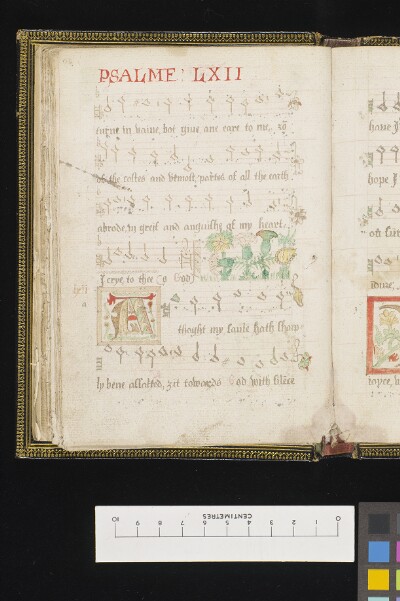 PSALME LXII
turne in vaine, bot giue ane eare to me.
of the costes and vtmost partes of all the earth
abrode, in greif and anguishe of my heart.
I crye to thee O God
thoght my saule hath sharp
ly bene assalted, zit towards God with silēce
haue I
hope I
oft sin
ioyce,
CENTIMETRES
10 9 8 7 6 5 4 3 2 1 0